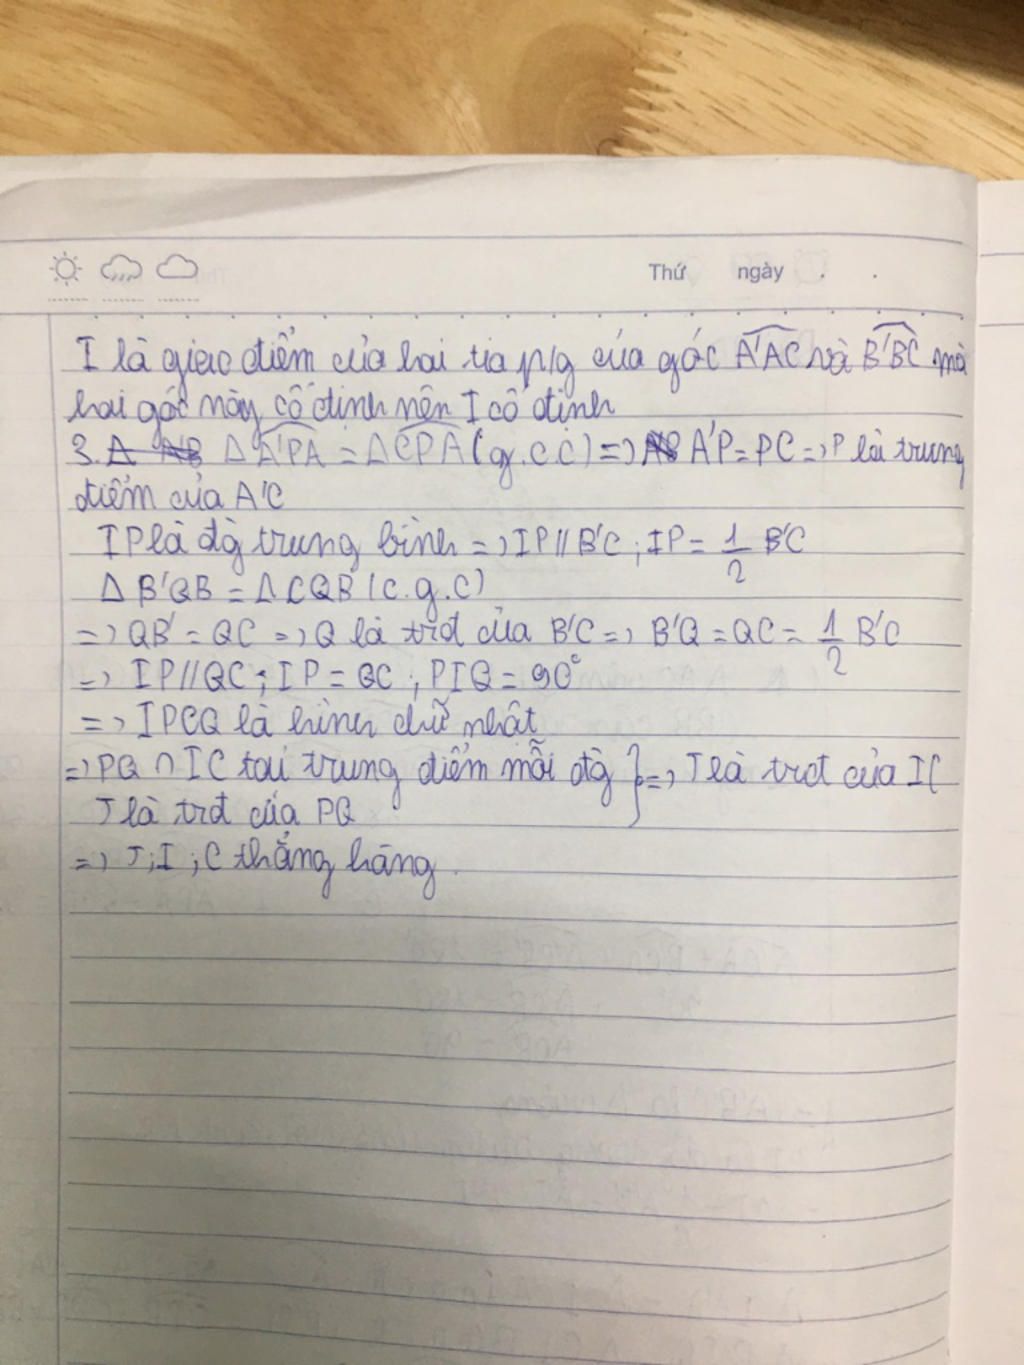 Thứ ngày . .
I là giao điểm của hai tia p/g của góc A'AC và B'BC mà
hai góc này cố định nên I cố định
3. Δ A'PA = Δ CPA (g.c.c) => A'P = PC => P là trung
điểm của A'C
IP là đg trung bình => IP // B'C ; IP = 1/2 B'C
Δ B'QB = Δ CQB (c.g.c)
=> QB' = QC => Q là trđ của B'C => B'Q = QC = 1/2 B'C
=> IP // QC ; IP = QC ; PIQ = 90°
=> IPCQ là hình chữ nhật
=> PQ ∩ IC tại trung điểm mỗi đg } => J là trđ của IC
J là trđ của PQ
=> J ; I ; C thẳng hàng.